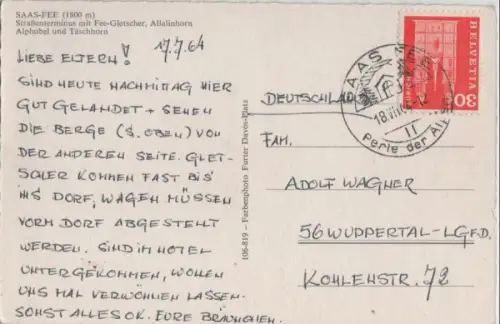 SAAS-FEE (1800 m)
Straßenterminus mit Fee-Gletscher, Allalinhorn
Alphubel und Täschhorn
17.7.64
LIEBE ELTERN!
SIND HEUTE NACHMITTAG HIER
GUT GELANDET + SEHEN
DIE BERGE (S. OBEN) VON
DER ANDEREN SEITE. GLET-
SCHER KOMMEN FAST BIS
INS DORF, WAGEN MÜSSEN
VORM DORF ABGESTELLT
WERDEN. SIND IM HOTEL
UNTERGEKOMMEN, WOLLEN
UNS MAL VERWÖHNEN LASSEN.
SONST ALLES OK. EURE BRÄUNCHEN.
106-819 - Farbenphoto Furter Davos-Platz
HELVETIA
30
SAAS-FEE
18.VII.64-12
11
Perle der Alpen
DEUTSCHLAND
FAM.
ADOLF WAGNER
56 WUPPERTAL-LGFD.
KOHLENSTR. 72